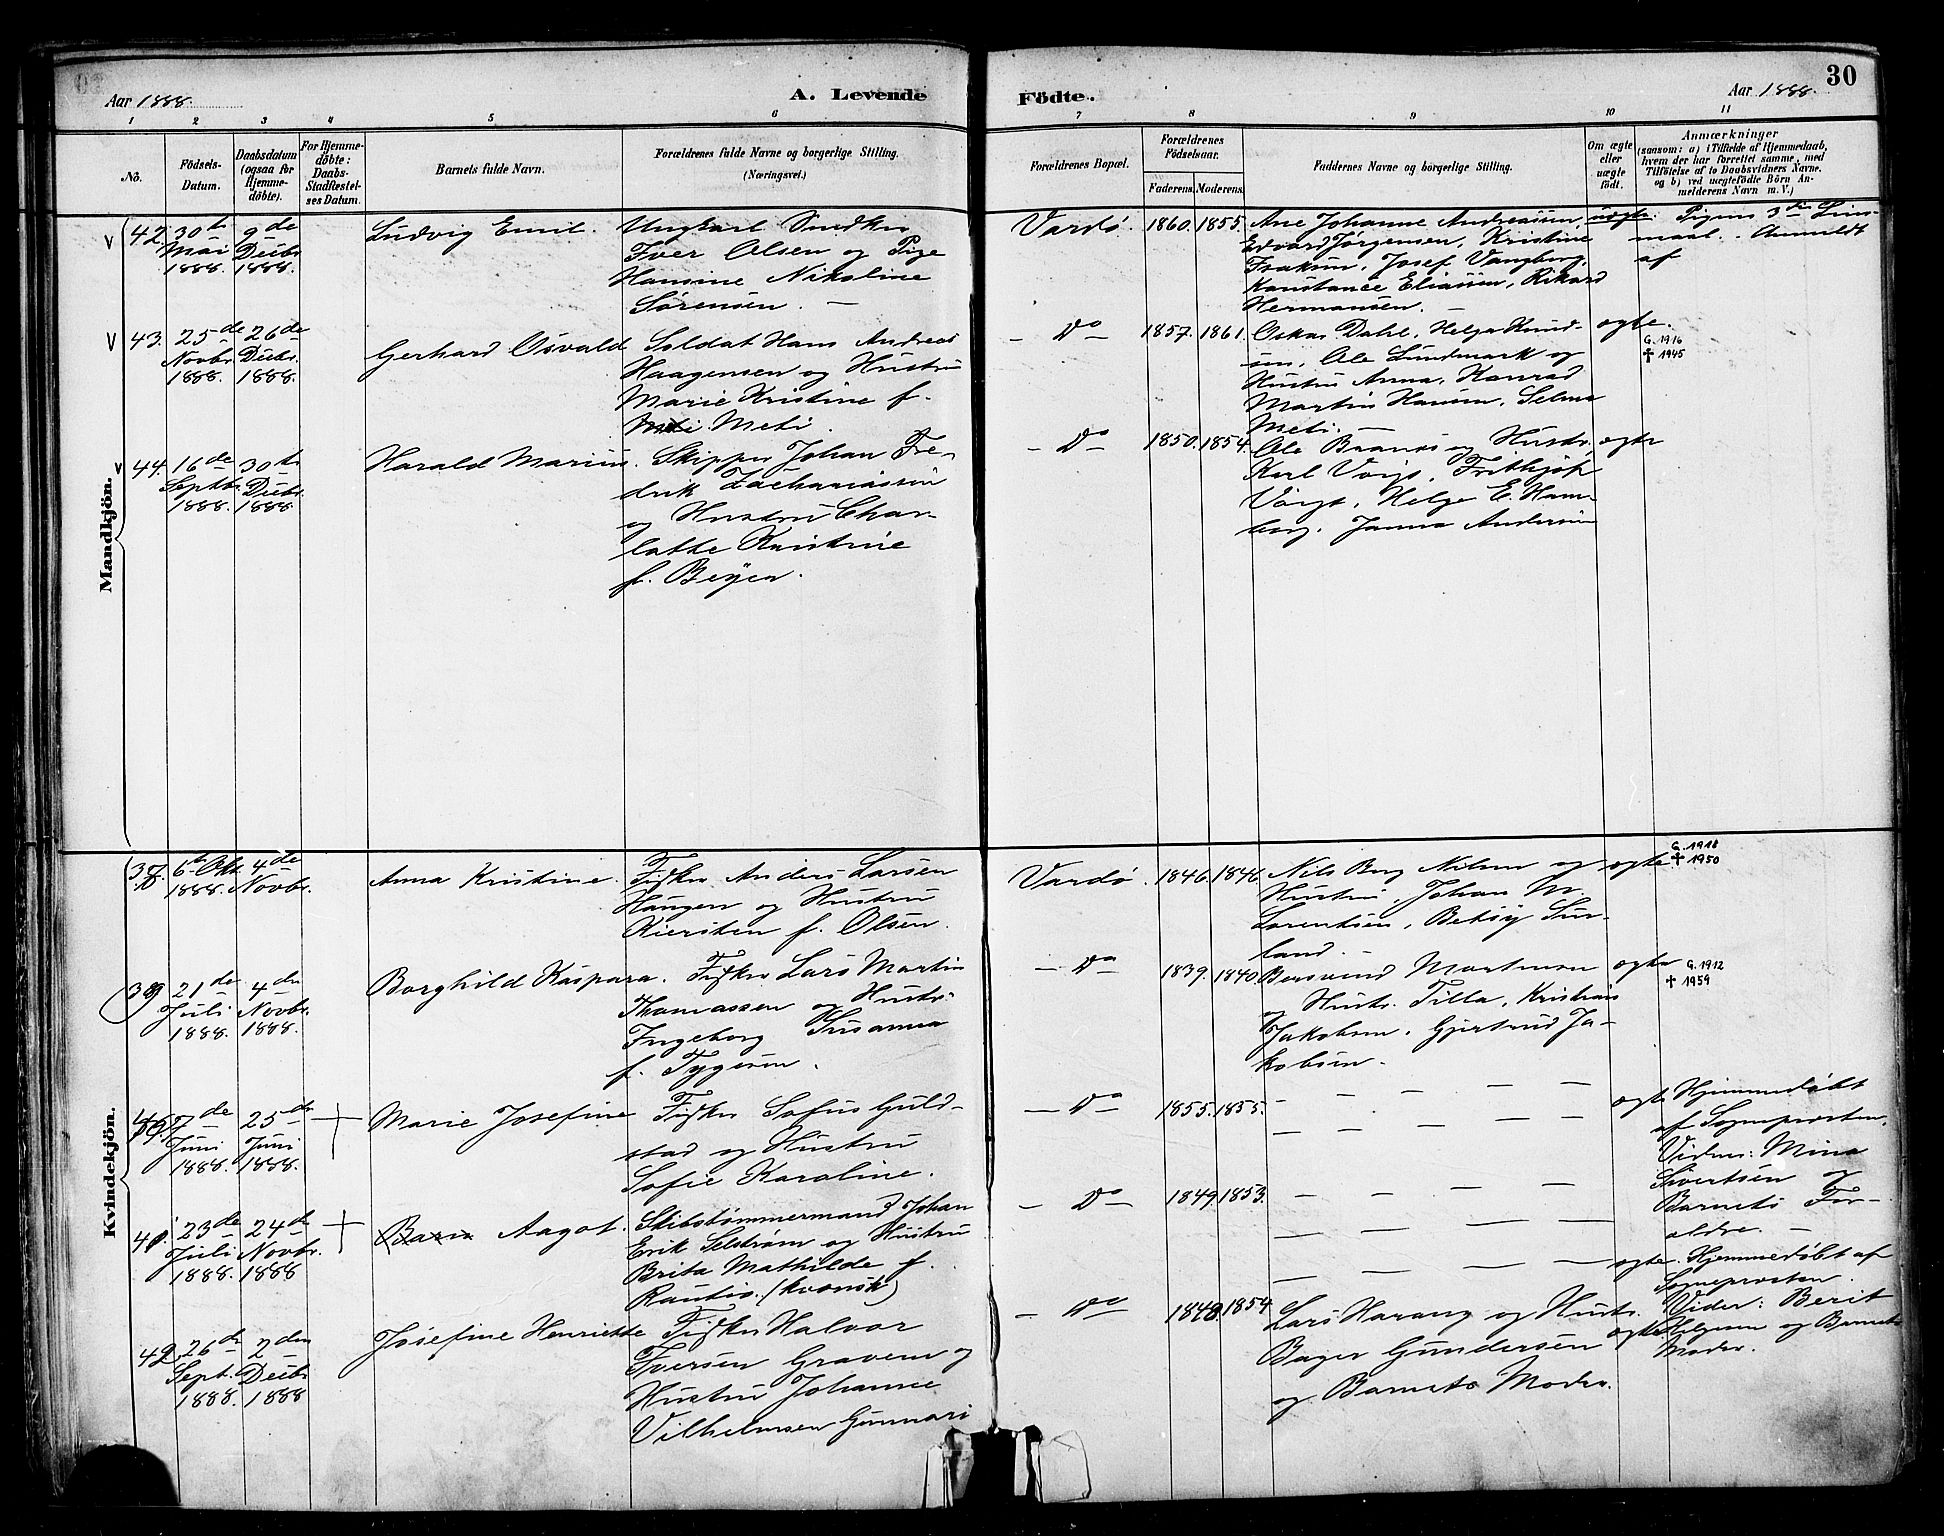 Aar 1888.
A. Levende
Födte.
Aar 1888.
30
1 2 3 4 5 6 7 8 9 10 11
No.
Födsels-
Datum.
Daabsdatum
(ogsaa for
Hjemme-
döbte).
For Hjemme-
döbte:
Daabs-
Stadfæstel-
ses Datum.
Barnets fulde Navn.
Forældrenes fulde Navne og borgerlige Stilling.
(Næringsvei.)
Forældrenes Bopæl.
Forældrenes
Födselsaar.
Faderens.
Moderens.
Faddernes Navne og borgerlige Stilling.
Om ægte
eller
uægte
födt.
Anmærkninger
(saasom: a) i Tilfælde af Hjemmedaab,
hvem der har forrettet samme, med
Tilföielse af to Daabsvidners Navne,
og b) ved uægtefödte Börn An-
melderens Navn m. V.)
Mandkjön.
42.
30te
Mai
1888.
9de
Decbr.
1888.
Ludvig Emil.
Ungkarl Snedker
Iver Olsen og Pige
Hansine Nikoline
Sörensen. —
Vardö.
1860.
1855.
Ane Johanne Andreassen,
Edvard Jørgensen, Kristine
Isaksen, Josef Vangberg,
Konstance Eliassen, Rikard
Hermansen. —
uægte.
Pigens 3die Leier-
maal. Anmeldt
af
43.
25de
Novbr.
1888.
26de
Decbr.
1888.
Gerhard Osvald
Soldat Hans Andreas
Haagensen og Hustru
Marie Kristine f.
Meti.
— Do —
1857.
1861.
Oskar Dahl, Helga Knud-
sen, Ole Lundmark og
Hustru Anna, Konrad
Martin Hansen, Selma
Meti. —
ægte.
G. 1916
✝ 1945
44.
16de
Septbr.
1888.
30te
Decbr.
1888.
Harald Marius.
Skipper Johan Fre-
drik Zachariassen
og Hustru Char-
lotte Kristine
f. Beyer.
— Do —
1850.
1854.
Ole Brænd og Hustr.
Karl Voigt, Frithjof
Voigt, Helge E. Ham-
berg, Janna Andersen
ægte
Kvindekjön.
38.
6te Okt.
1888.
4de
Novbr.
Anna Kristine.
Fisker Anders Larsen
Haugen og Hustru
Kiersten f. Olsen.
Vardö.
1846.
1846.
Nils Berg Nilsen og
Hustru, Johan M.
Lorentsen, Betsy Sun-
land. —
ægte
G. 1918
✝ 1950
39
21de
Juli
1888.
4de
Novbr.
1888.
Borghild Kaspara.
Fisker Lars Martin
Thomassen og Hustr.
Ingeborg Susanna
f. Tygesen.
— Do —
1839.
1840.
Martinsen
og Hustr. Tilla, Kristian
Jakobsen, Gjertrud Ja-
kobsen. —
ægte
G. 1912
✝ 1959
7de
Juni
1888.
25de
Juni
1888.
Marie Josefine
Fisker Sofus Guld-
stad og Hustru
Sofie Karoline.
— Do —
1855.
1855.
ægte
Hjemmedøbt
af Sogneprosten.
Vidner: Mina
Sivertsen og
Barnets For-
ældre. —
41.
23de
Juli
1888.
24de
Novbr.
1888
Aagot.
Skibstømmermand Johan
Erik Selstrøm og Hustru
Brita Mathilde f.
Rautio. (kvænsk)
— Do —
1849.
1853.
ægte.
Hjemmedøbt af
Sogneprosten.
Vidner: Berit
Helgesen og Barnets
Moder.
42.
26de
Sept.
1888.
2den
Decbr.
1888
Josefine Henriette
Fisker Halvor
Iversen Gravem og
Hustru Johanne
Vilhelmsen Gunnari
— Do —
1848.
1854
Lars Harang og Hustr.
Bager Gundersen
og Barnets Moder.
ægte